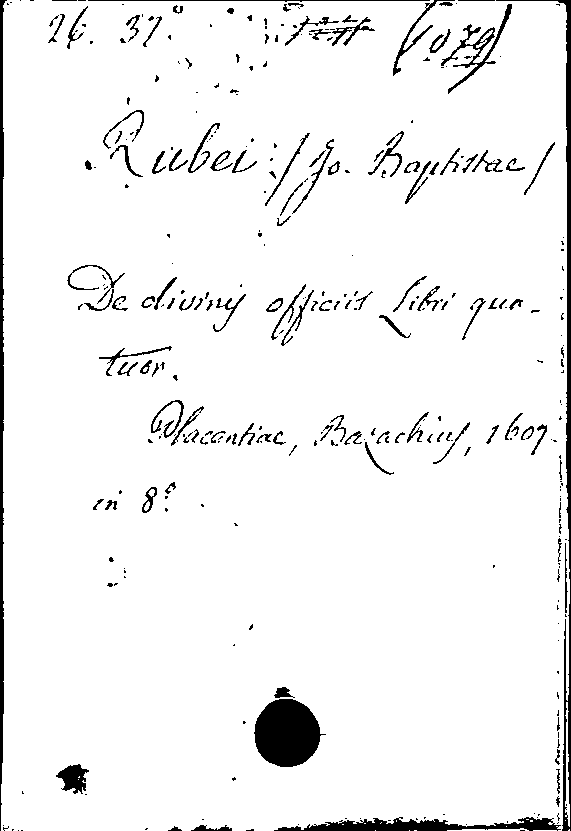 26. 37.° (1079)
Rubei (Jo. Baptistae)
De divinis officiis Libri qua-
tuor.
Placentiae, Bazachius, 1607.
in 8°.